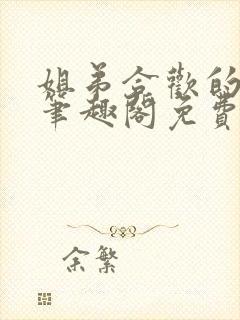 姐弟合歡的
筆趣閣免費
余繁